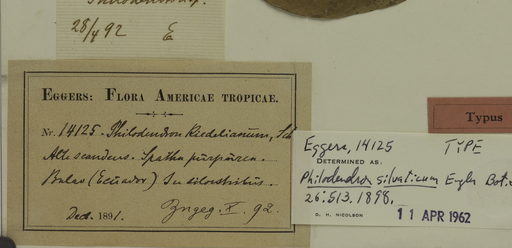 Philodendron sp.
28/4 92 E
EGGERS: FLORA AMERICAE TROPICAE.
Nr. 14125. Philodendron Riedelianum, Sch
Alte scandens. Spatha purpurea.
Balao (Ecuador) In silvestribus.
Dec. 1891. Engeg. X. 92.
Typus
Eggers, 14125 TYPE
DETERMINED AS.
Philodendron silvaticum Engler Bot.
26:513. 1898.
D. H. NICOLSON 11 APR 1962